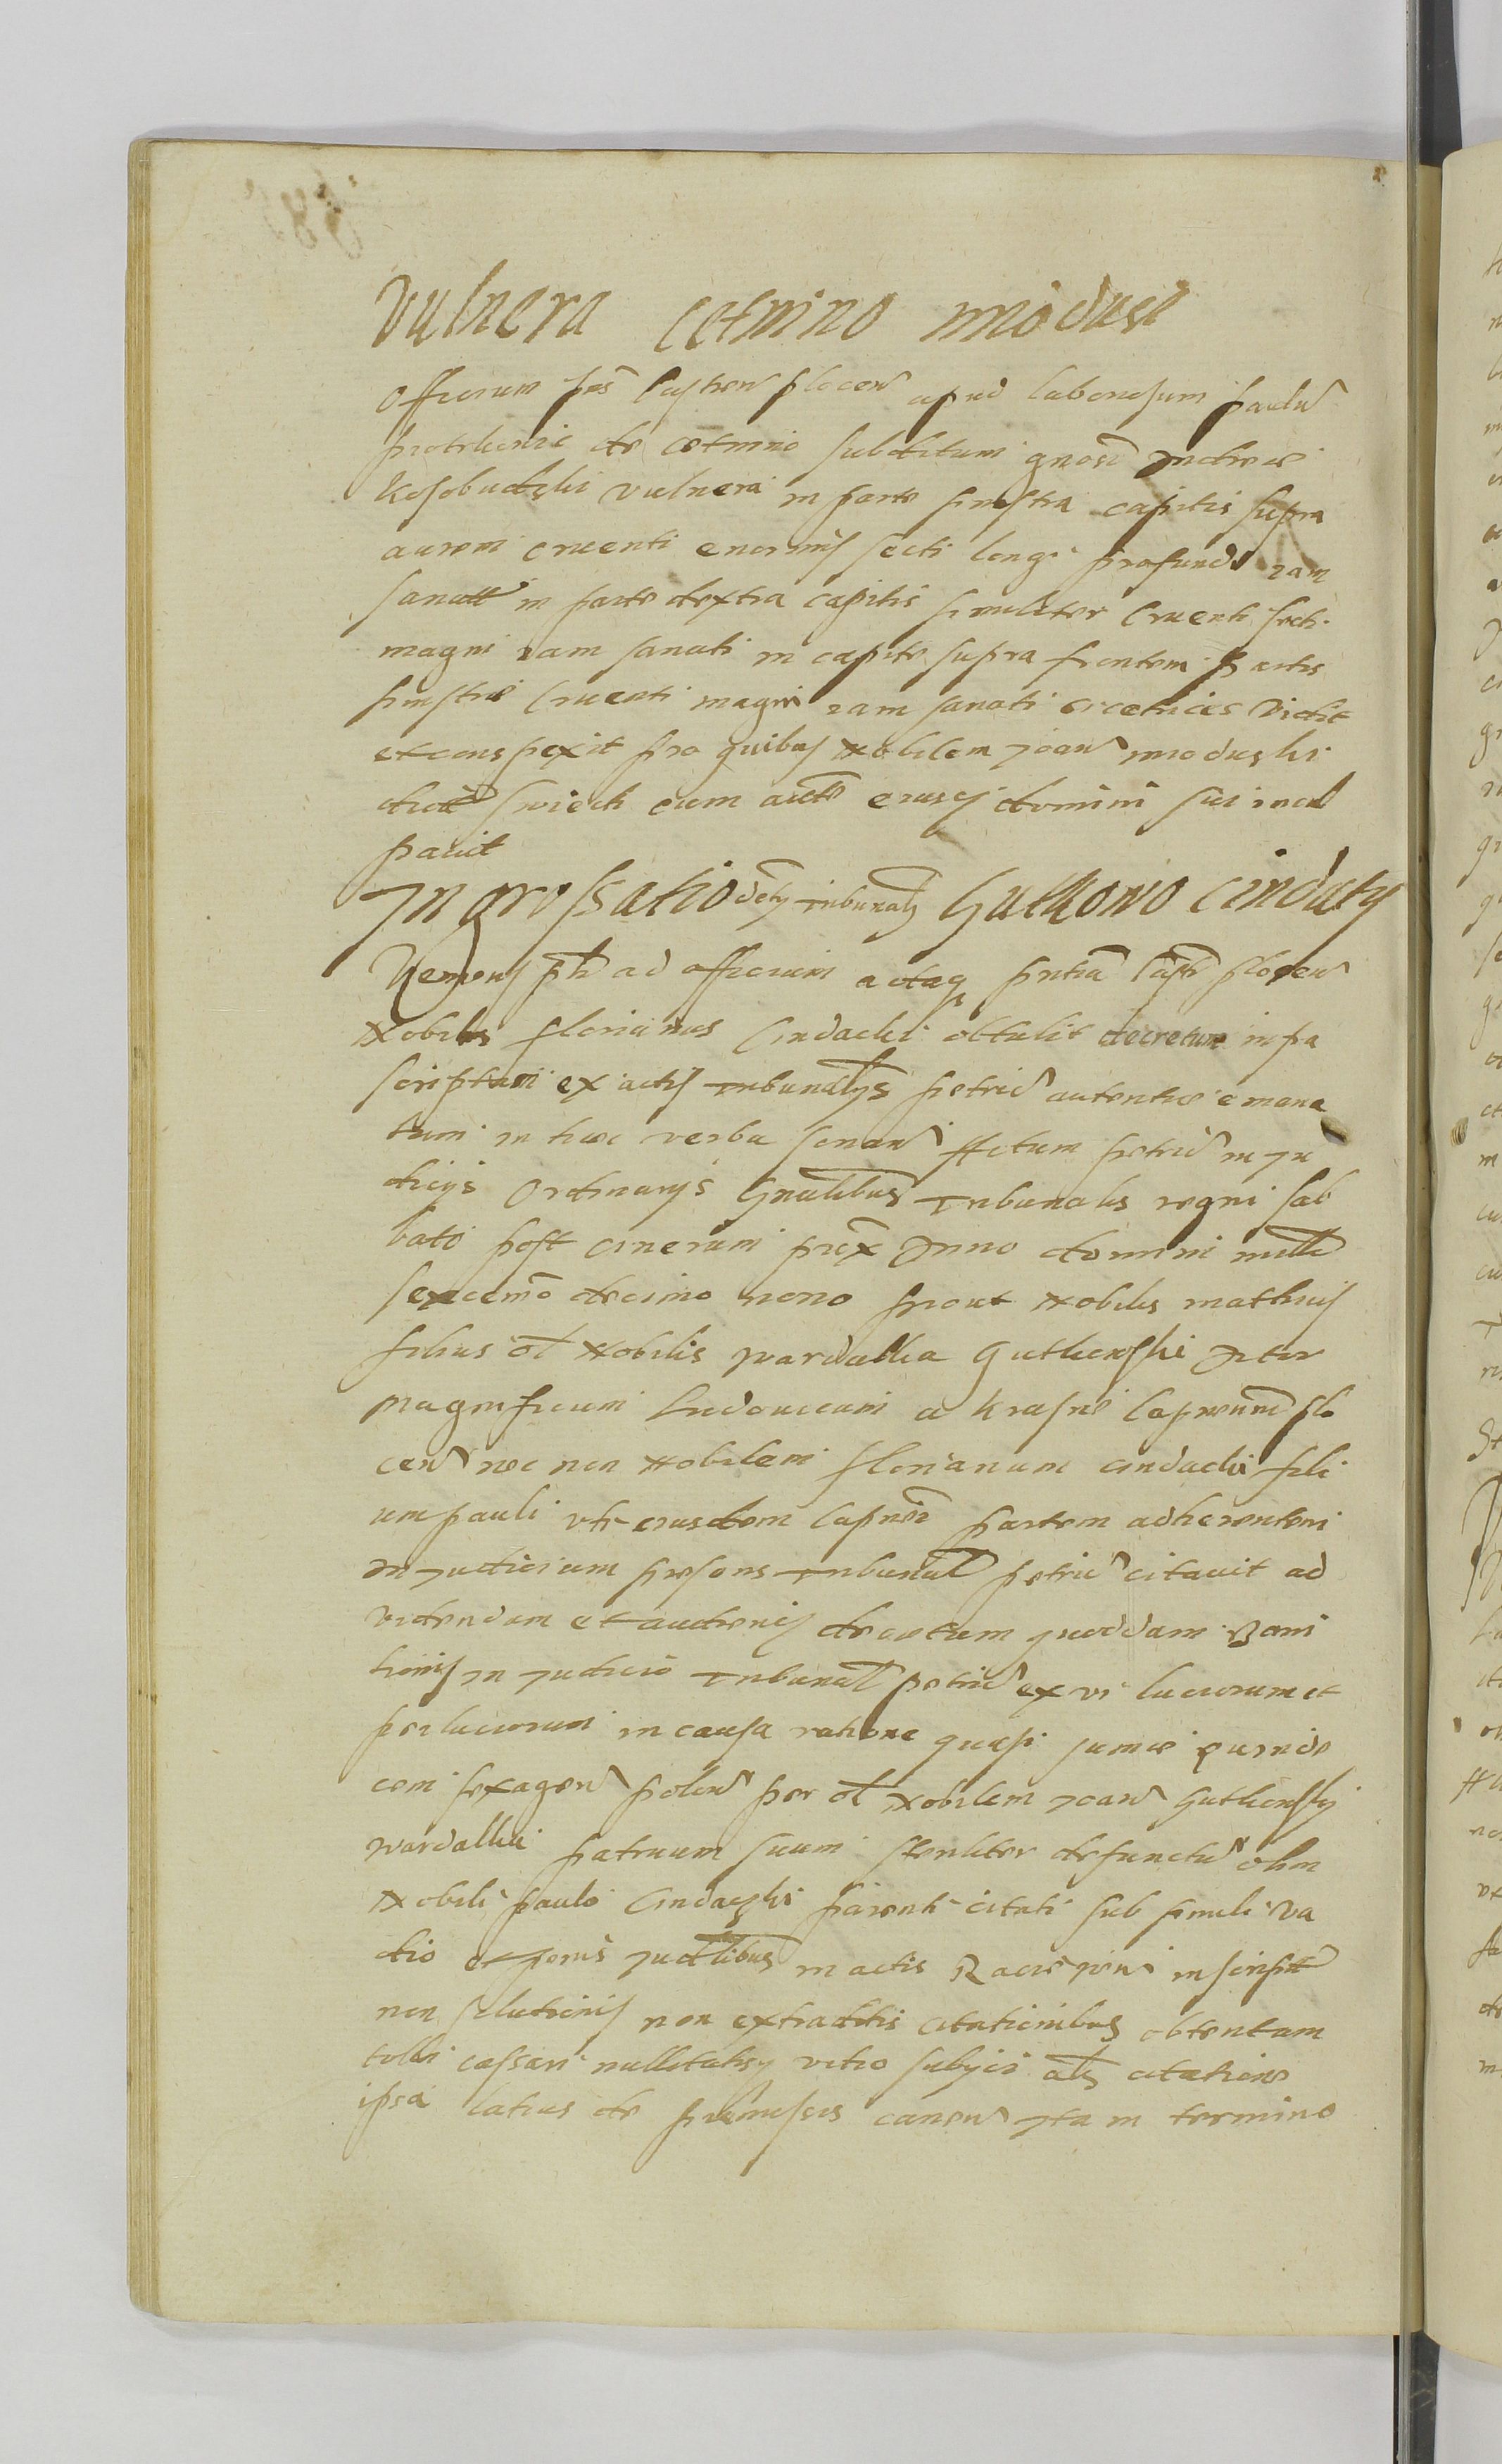 Vulnera Cetnino mιodusi
Officium pns Castren Plocen apud laboriosum Paulu
de Cetnino subditum gnosi Andreae
Kosobudzki vulnera in parte sinistra capitis supra
aurem cruenti enormis secti longi profundi iam
sanati in parte dextra capitis similiter cruenti secti
magni iam sanati in capite supra frontem partis
sinistrae cruenti magni iam sanati cicatrices vidit
et conspexit pro quibus Nobilem Joan mioduski
dict swieck cum aucte eiusq domini sui incul
pavit
Ingrossatio decti Tribunal Gutkowo Cindaty
Veniens ph ad officium actaq pntia Castr Plocen
Nobilis Florianus Cindacki obtulit decretum infra
scriptum ex actis Tribunalijs Petric autentice emana
tum in haec verba sonan Actum Petric in Ju
dicijs Ordinarijs Gnalibus Tribunalis regni sab
bato post cinerum prox Anno domini mille
sexcemo decimo nono prout Nobilis mathias
filius ol Nobilis wardalka Gutkowski
Magnificum Ludovicum a Krasne Capneum Plo
cen nec non Nobilem Florianum Cindacki fili
um Pauli uti eiusdem Capnei partem adherentem
In Judicium praesens Tribunal Petric citavit ad
videndum et audiend decretum quoddam Bani
tionis in Judicio Tribunal Petric ex vi lucrorum et
perlucrorum in causa ratione quasi sumae quinde
cem sexagen polon per ol Nobilem Joan Gutkowski
wardalka patruum suum steriliter defunctu olim
Nobili Paulo Cindaczki parenti citati sub simili va
dio et penis Judlibus in actis Raciazen inscript
non solutionis non extraditis citationibus obtentam
tolli cassari nullitatisq vitio subijci als citatione
ipsa latius de premissis canen Ita in termino